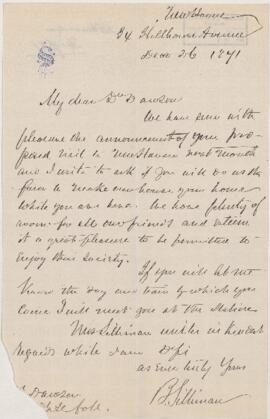 New Haven
34 Hillhouse Avenue
Dec 26 1871
My dear Dr Dawson
We have seen with
pleasure the announcement of your pro-
posed visit to New Haven next month
and I write to ask if you will do us the
favor to make our house your home
while you are here. We have plenty of
room for all our friends and esteem
it a great pleasure to be permitted to
enjoy their society.
If you will let me
know the day and train by which you
come I will meet you at the station
Mrs Silliman unites in kindest
regards while I am Dr Sir
as ever truly Yours
B. Silliman
Dawson